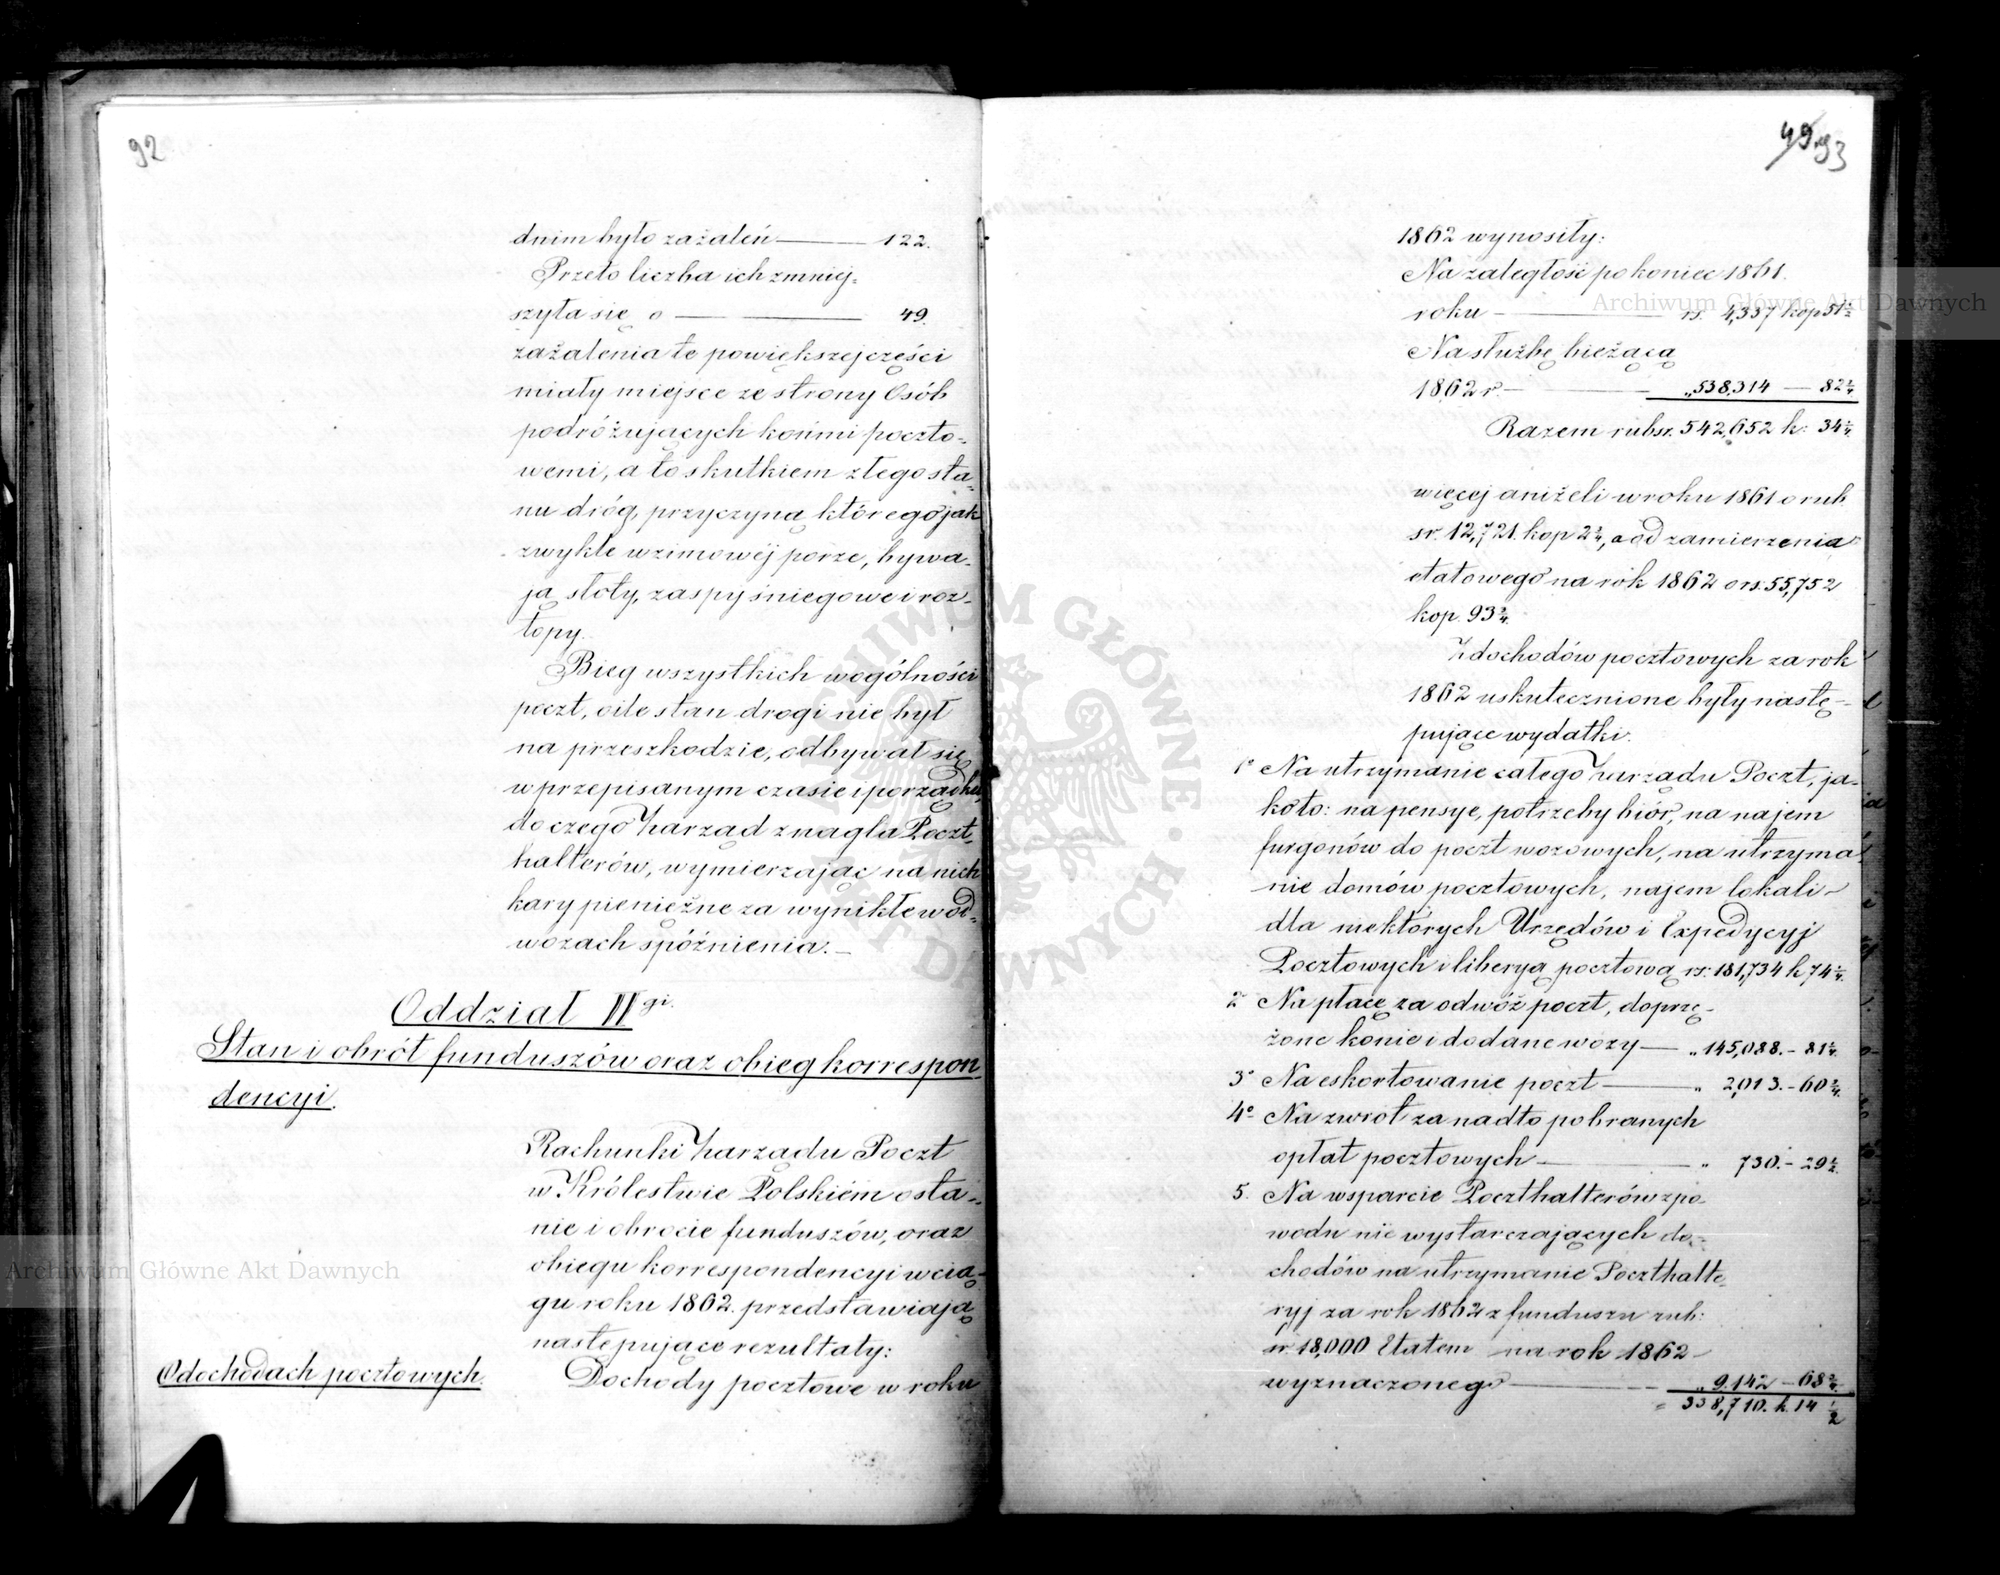 92
dnim było zażaleń 122.
Przeto liczba ich zmniej-
szyła się o 49.
zażalenia te powiększej części
miały miejsce ze strony Osób
podróżujących końmi poczto-
wemi, a to skutkiem złego sta-
nu dróg, przyczyną którego jak
zwykle w zimowéj porze, bywa-
ją słoty, zaspy śniegowe i roz-
topy.
Bieg wszystkich wogólności
poczt, o ile stan drogi nie był
na przeszkodzie, odbywał się
w przepisanym czasie i porządku,
do czego Zarząd znagla Poczt-
halterów, wymierzając na nich
kary pieniężne za wynikłe w od-
wozach spóźnienia.—
Oddział II gi.
Stan i obrót funduszów oraz obieg korrespon-
dencyi.
Rachunki Zarządu Poczt
w Królestwie Polskiém o sta-
nie i obrocie funduszów, oraz
obiegu korrespondencyi w cią-
gu roku 1862. przedstawiają
następujące rezultaty:
O dochodach pocztowych. Dochody pocztowe w roku
49. 93
1862 wynosiły:
Na zaległość po koniec 1861.
roku — rs. 4,337 kop 51 1/2
Na służbę bieżącą
1862 r. — „ 538,314 — 82 3/4
Razem rubsr. 542,652 k: 34 1/4
więcej aniżeli w roku 1861 o rub.
sr. 12,721. kop 2 3/4, a od zamierzenia
etatowego na rok 1862 o rs. 55,752
kop. 93 3/4.
Z dochodów pocztowych za rok
1862 uskutecznione były nastę-
pujące wydatki.
1º Na utrzymanie całego Zarządu Poczt, ja-
koto: na pensye, potrzeby biór, na najem
furgonów do poczt wozowych, na utrzyma-
nie domów pocztowych, najem lokali
dla niektórych Urzędów i Expedycyj
Pocztowych i liberyą pocztową rs: 181,734 k 74 1/4.
2º Na płacę za odwóż poczt, doprzę-
żone konie i dodane wozy — „ 145,088. – 81 1/4.
3º Na eskortowanie poczt — „ 2,013. – 60 3/4.
4º Na zwrot za nadto pobranych
opłat pocztowych — „ 730. – 29 1/2.
5. Na wsparcie Poczthalterów z po-
wodu nie wystarczających do-
chodów na utrzymanie Poczthalte-
ryj za rok 1862 z funduszu rub:
sr 18,000 Etatem na rok 1862
wyznaczonego — „ 9.142 – 68 3/4.
338,710. k. 14 1/2
Archiwum Główne Akt Dawnych
Archiwum Główne Akt Dawnych
ARCHIWUM GŁÓWNE AKT DAWNYCH